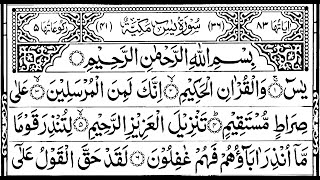 اٰیَاتُهَا ۸۳ (۳۶) سُوْرَةُ یٰسٓ مَکِّیَّةٌ (۴۱) رُکُوْعَاتُهَا ۵
بِسْمِ اللّٰهِ الرَّحْمٰنِ الرَّحِیْمِ
یٰسٓ ۚ۝ وَالْقُرْاٰنِ الْحَکِیْمِ ۙ۝ اِنَّكَ لَمِنَ الْمُرْسَلِیْنَ ۙ۝ عَلٰی
صِرَاطٍ مُّسْتَقِیْمٍ ؕ۝ تَنْزِیْلَ الْعَزِیْزِ الرَّحِیْمِ ۙ۝ لِتُنْذِرَ قَوْمًا
مَّاۤ اُنْذِرَ اٰبَآؤُهُمْ فَهُمْ غٰفِلُوْنَ ۝ لَقَدْ حَقَّ الْقَوْلُ عَلٰۤی